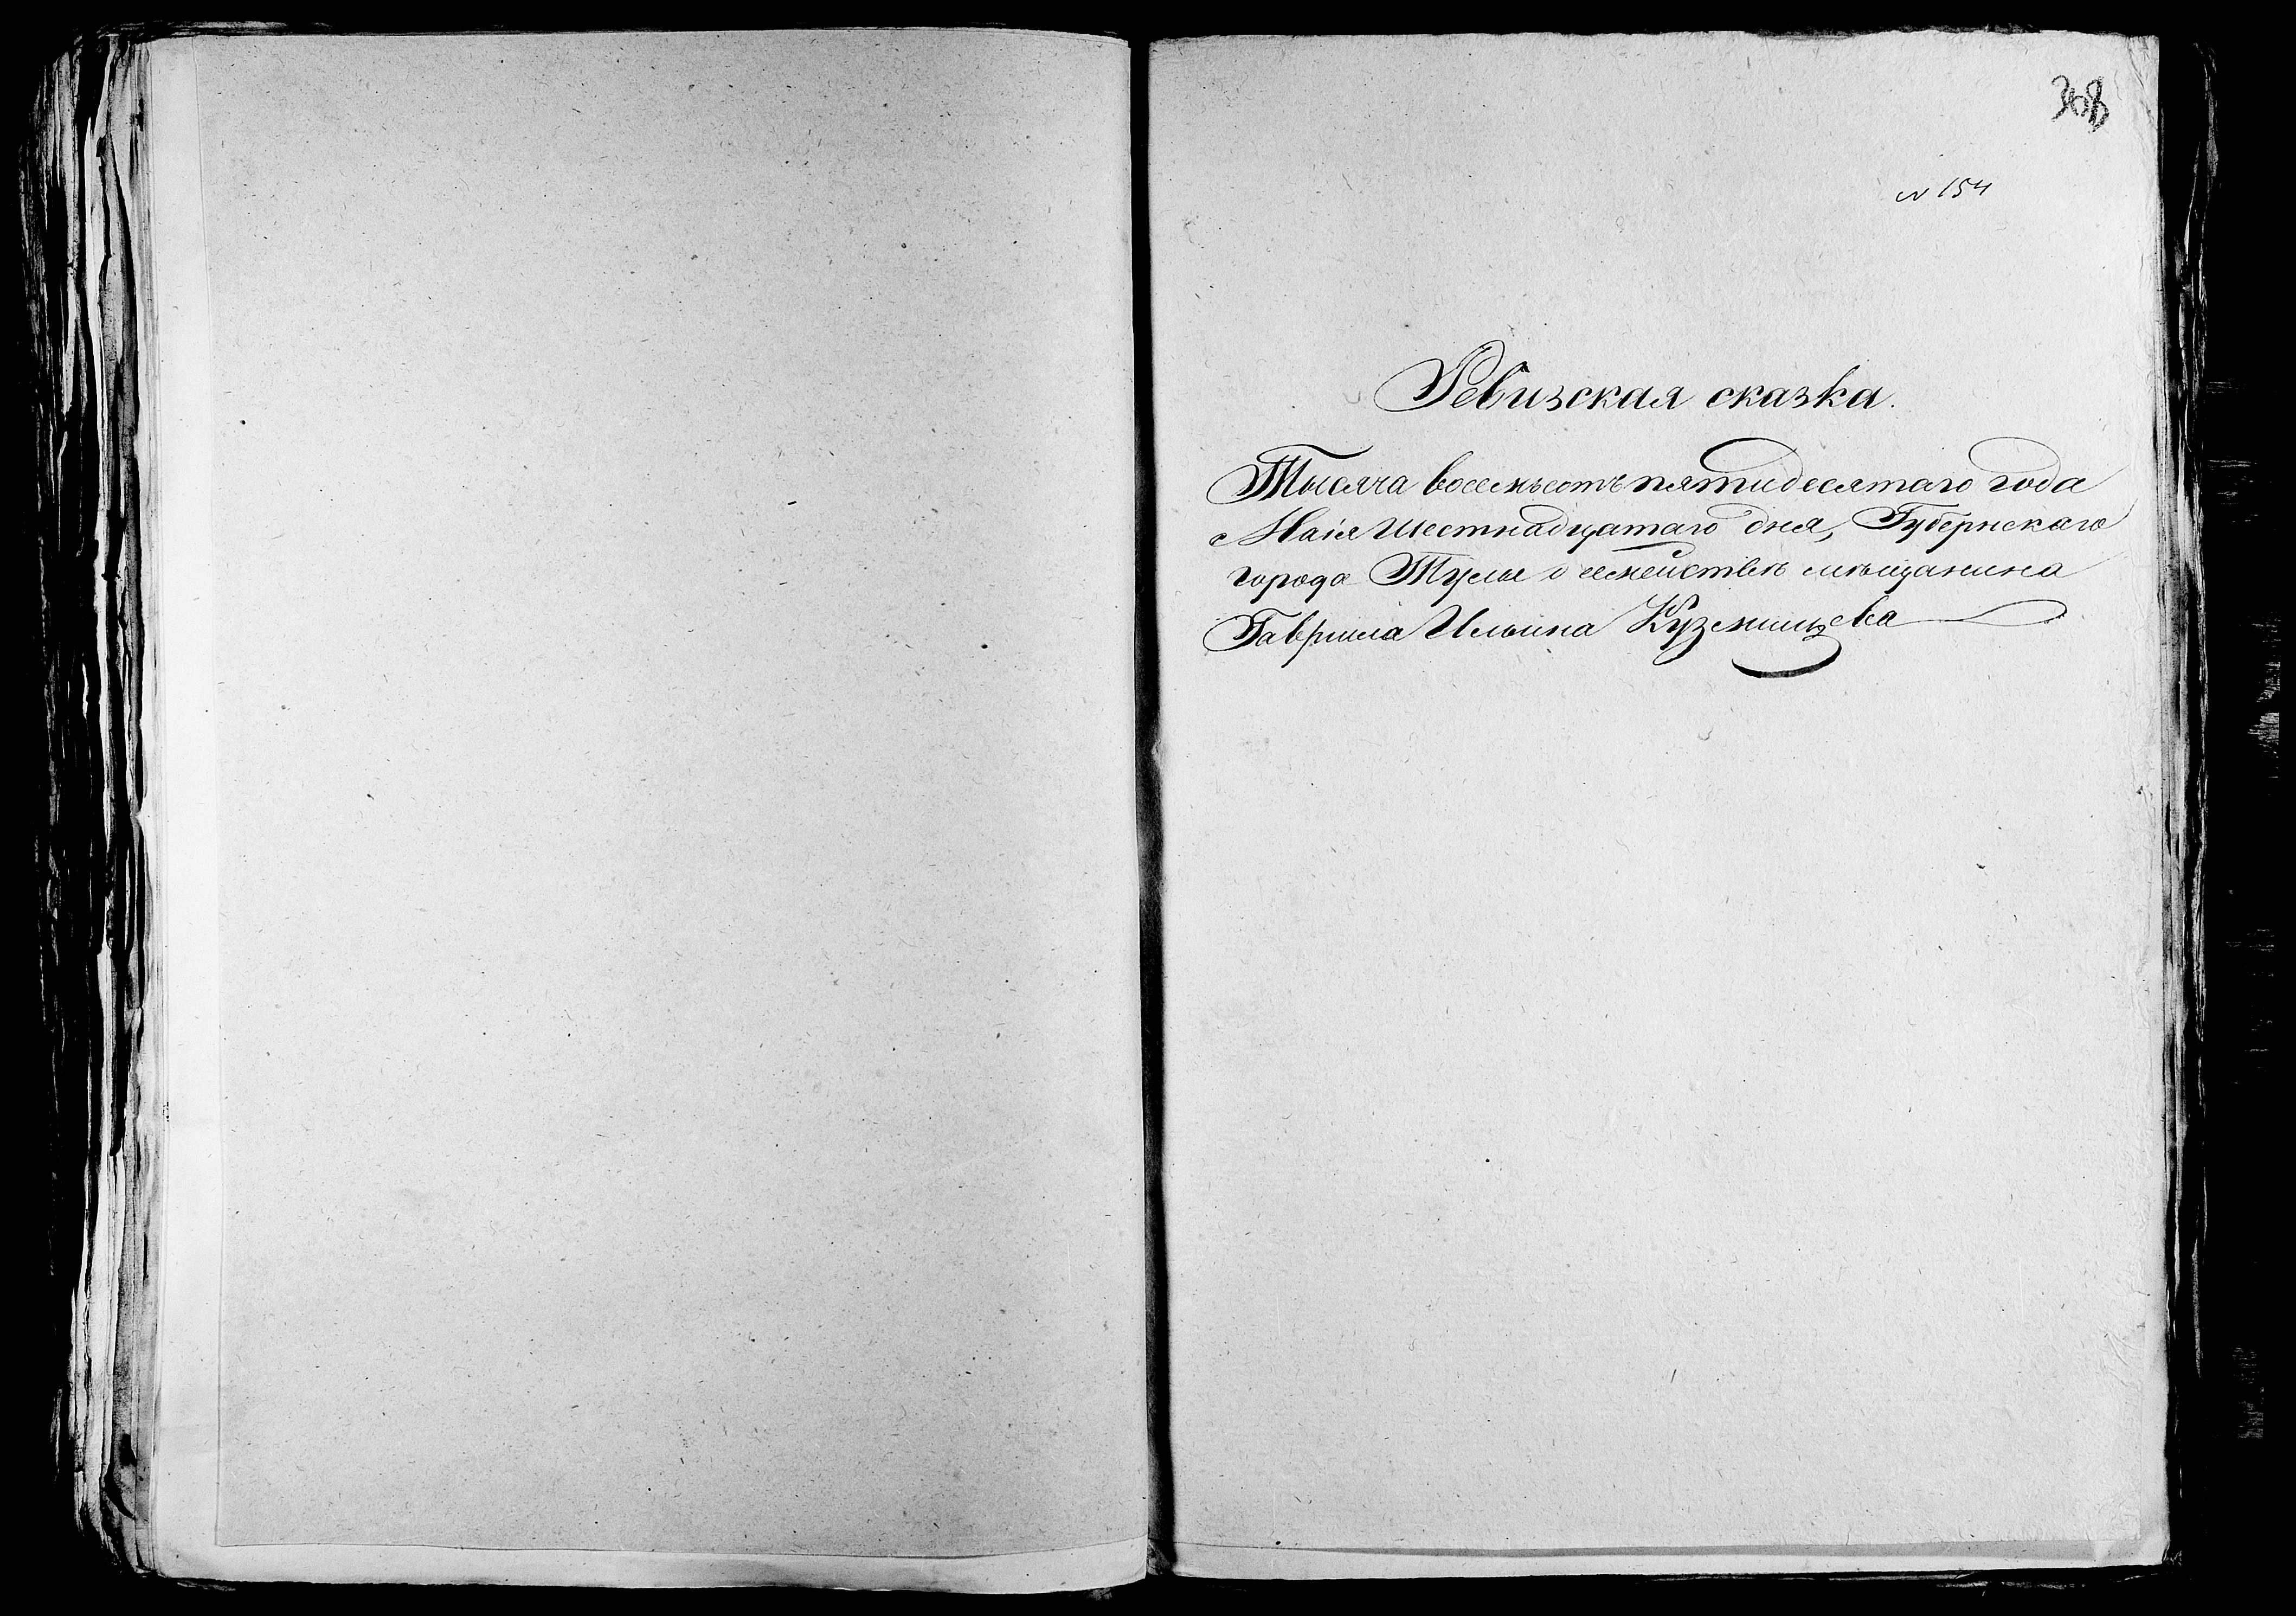 № 154
Ревизская сказка.
Тысяча восемьсотъ пятидесятаго года
Маія шестнадцатаго дня, Губернскаго
города Тулы о семействѣ мѣщанина
Гаврила Ильина Кузмищева